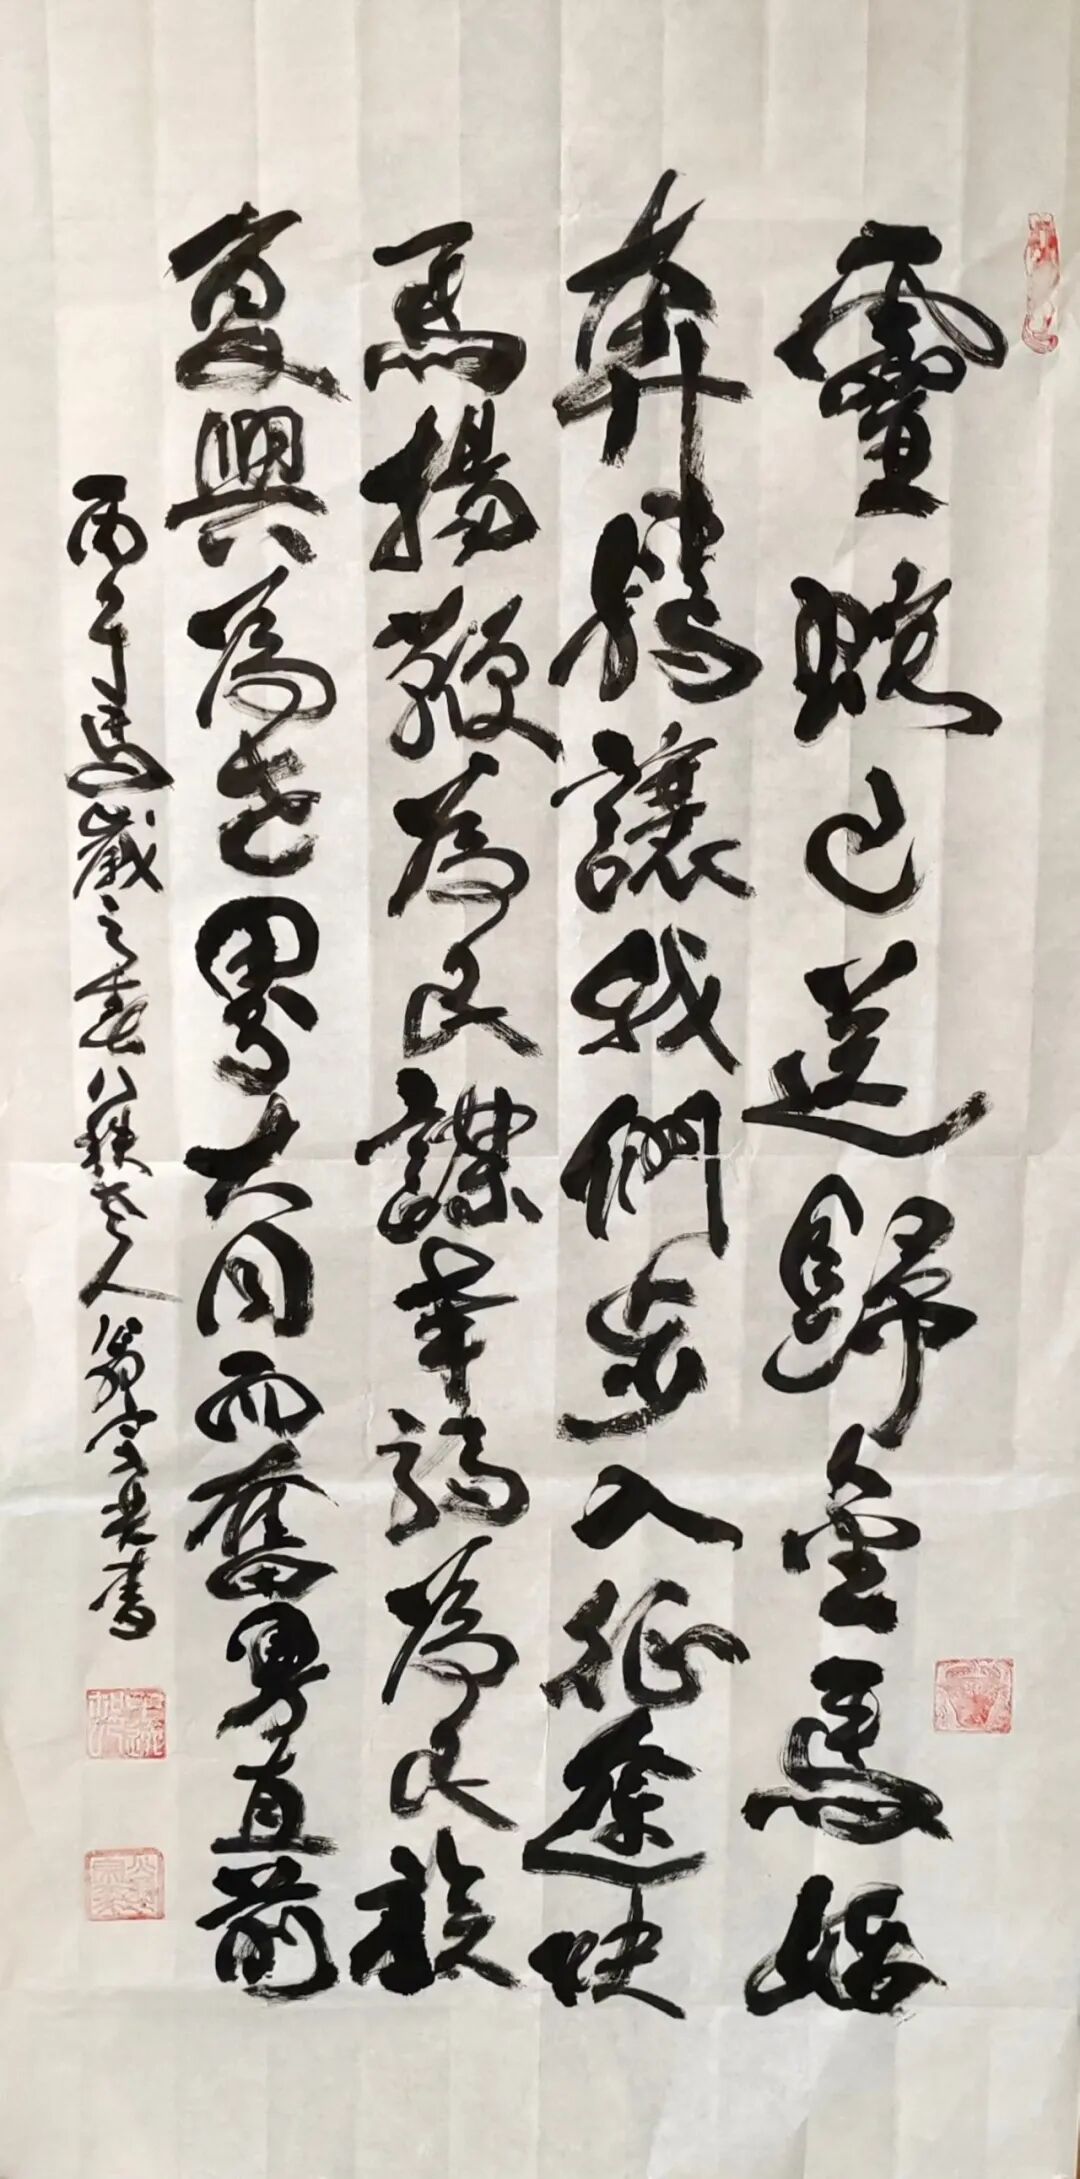 靈蛇已送歸金馬始
奔騰讓我們步入征途快
馬揚鞭為民謀幸福為民族
復興為世界大同而奮勇直前
丙午馬歲之春八秩老人翁書